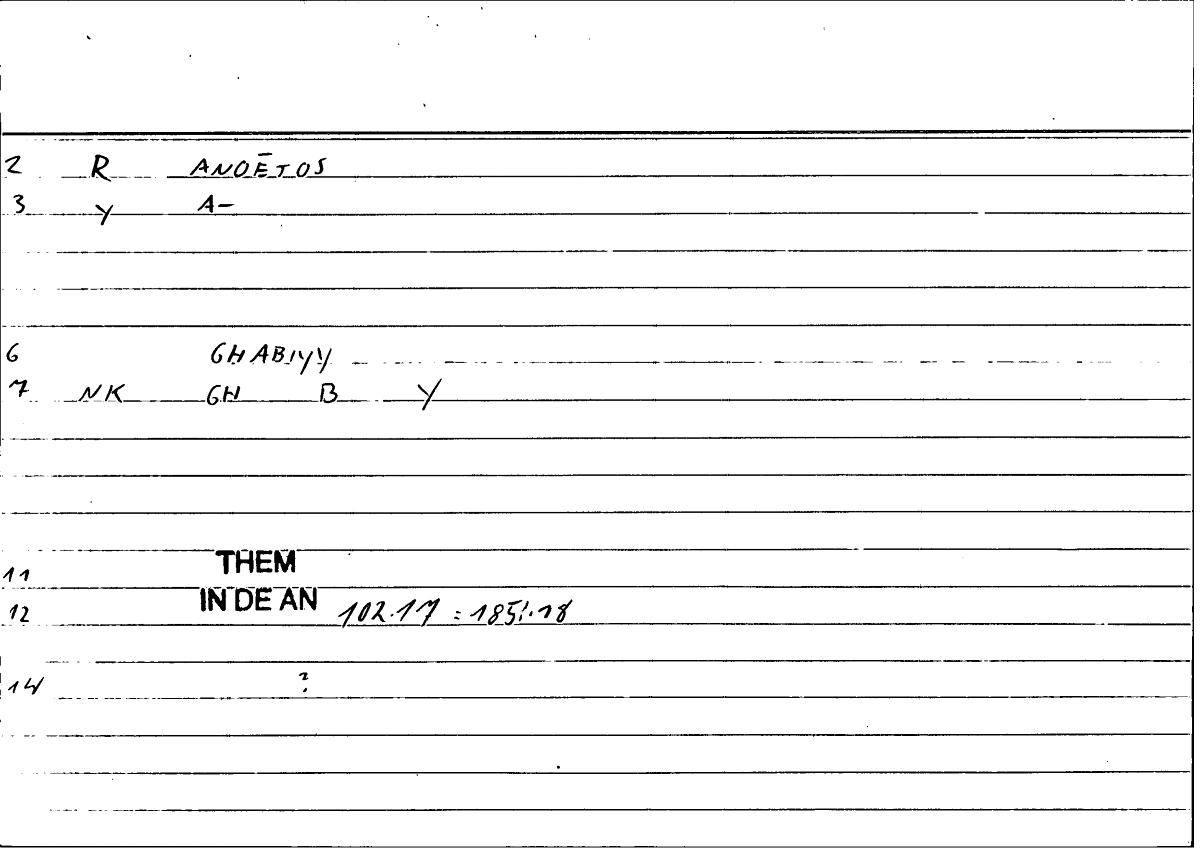 2 R ANOĒTOS
3 Y A-
6 GHABIYY
7 NK GH B Y
11 THEM
12 IN DE AN 102.17 = 185:.18
14 ?